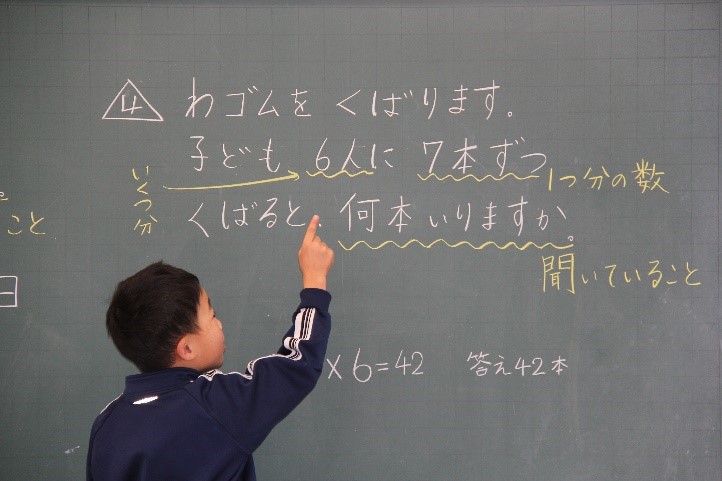 4 わゴムを くばります。
子ども 6人に 7本ずつ
いくつ分
1つ分の数
くばると、何本いりますか。
聞いていること
こと
×6=42 答え42本